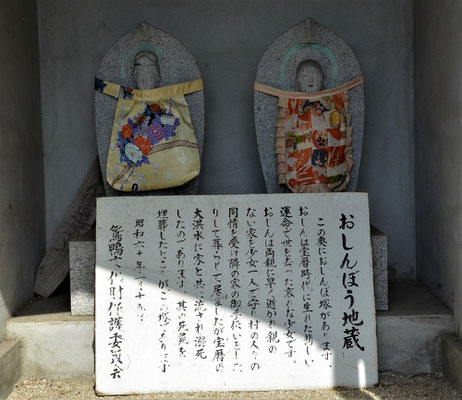 おしんぼう地蔵
この奥におしんぼ塚があります。
おしんは宝暦時代に生れた悲しい
運命で世を去った哀れな少女です。
おしんは両親に早く逝かれ親の
ない家を少女一人で守り村の人々の
同情を受け隣の家の御手伝いをした
りして暮らして居ましたが宝暦の
大洪水に家と共に流され溺死
したのであります。其の死骸を
埋葬したところがこの塚であります
昭和六十年
鴛鴨文化財保護委員会